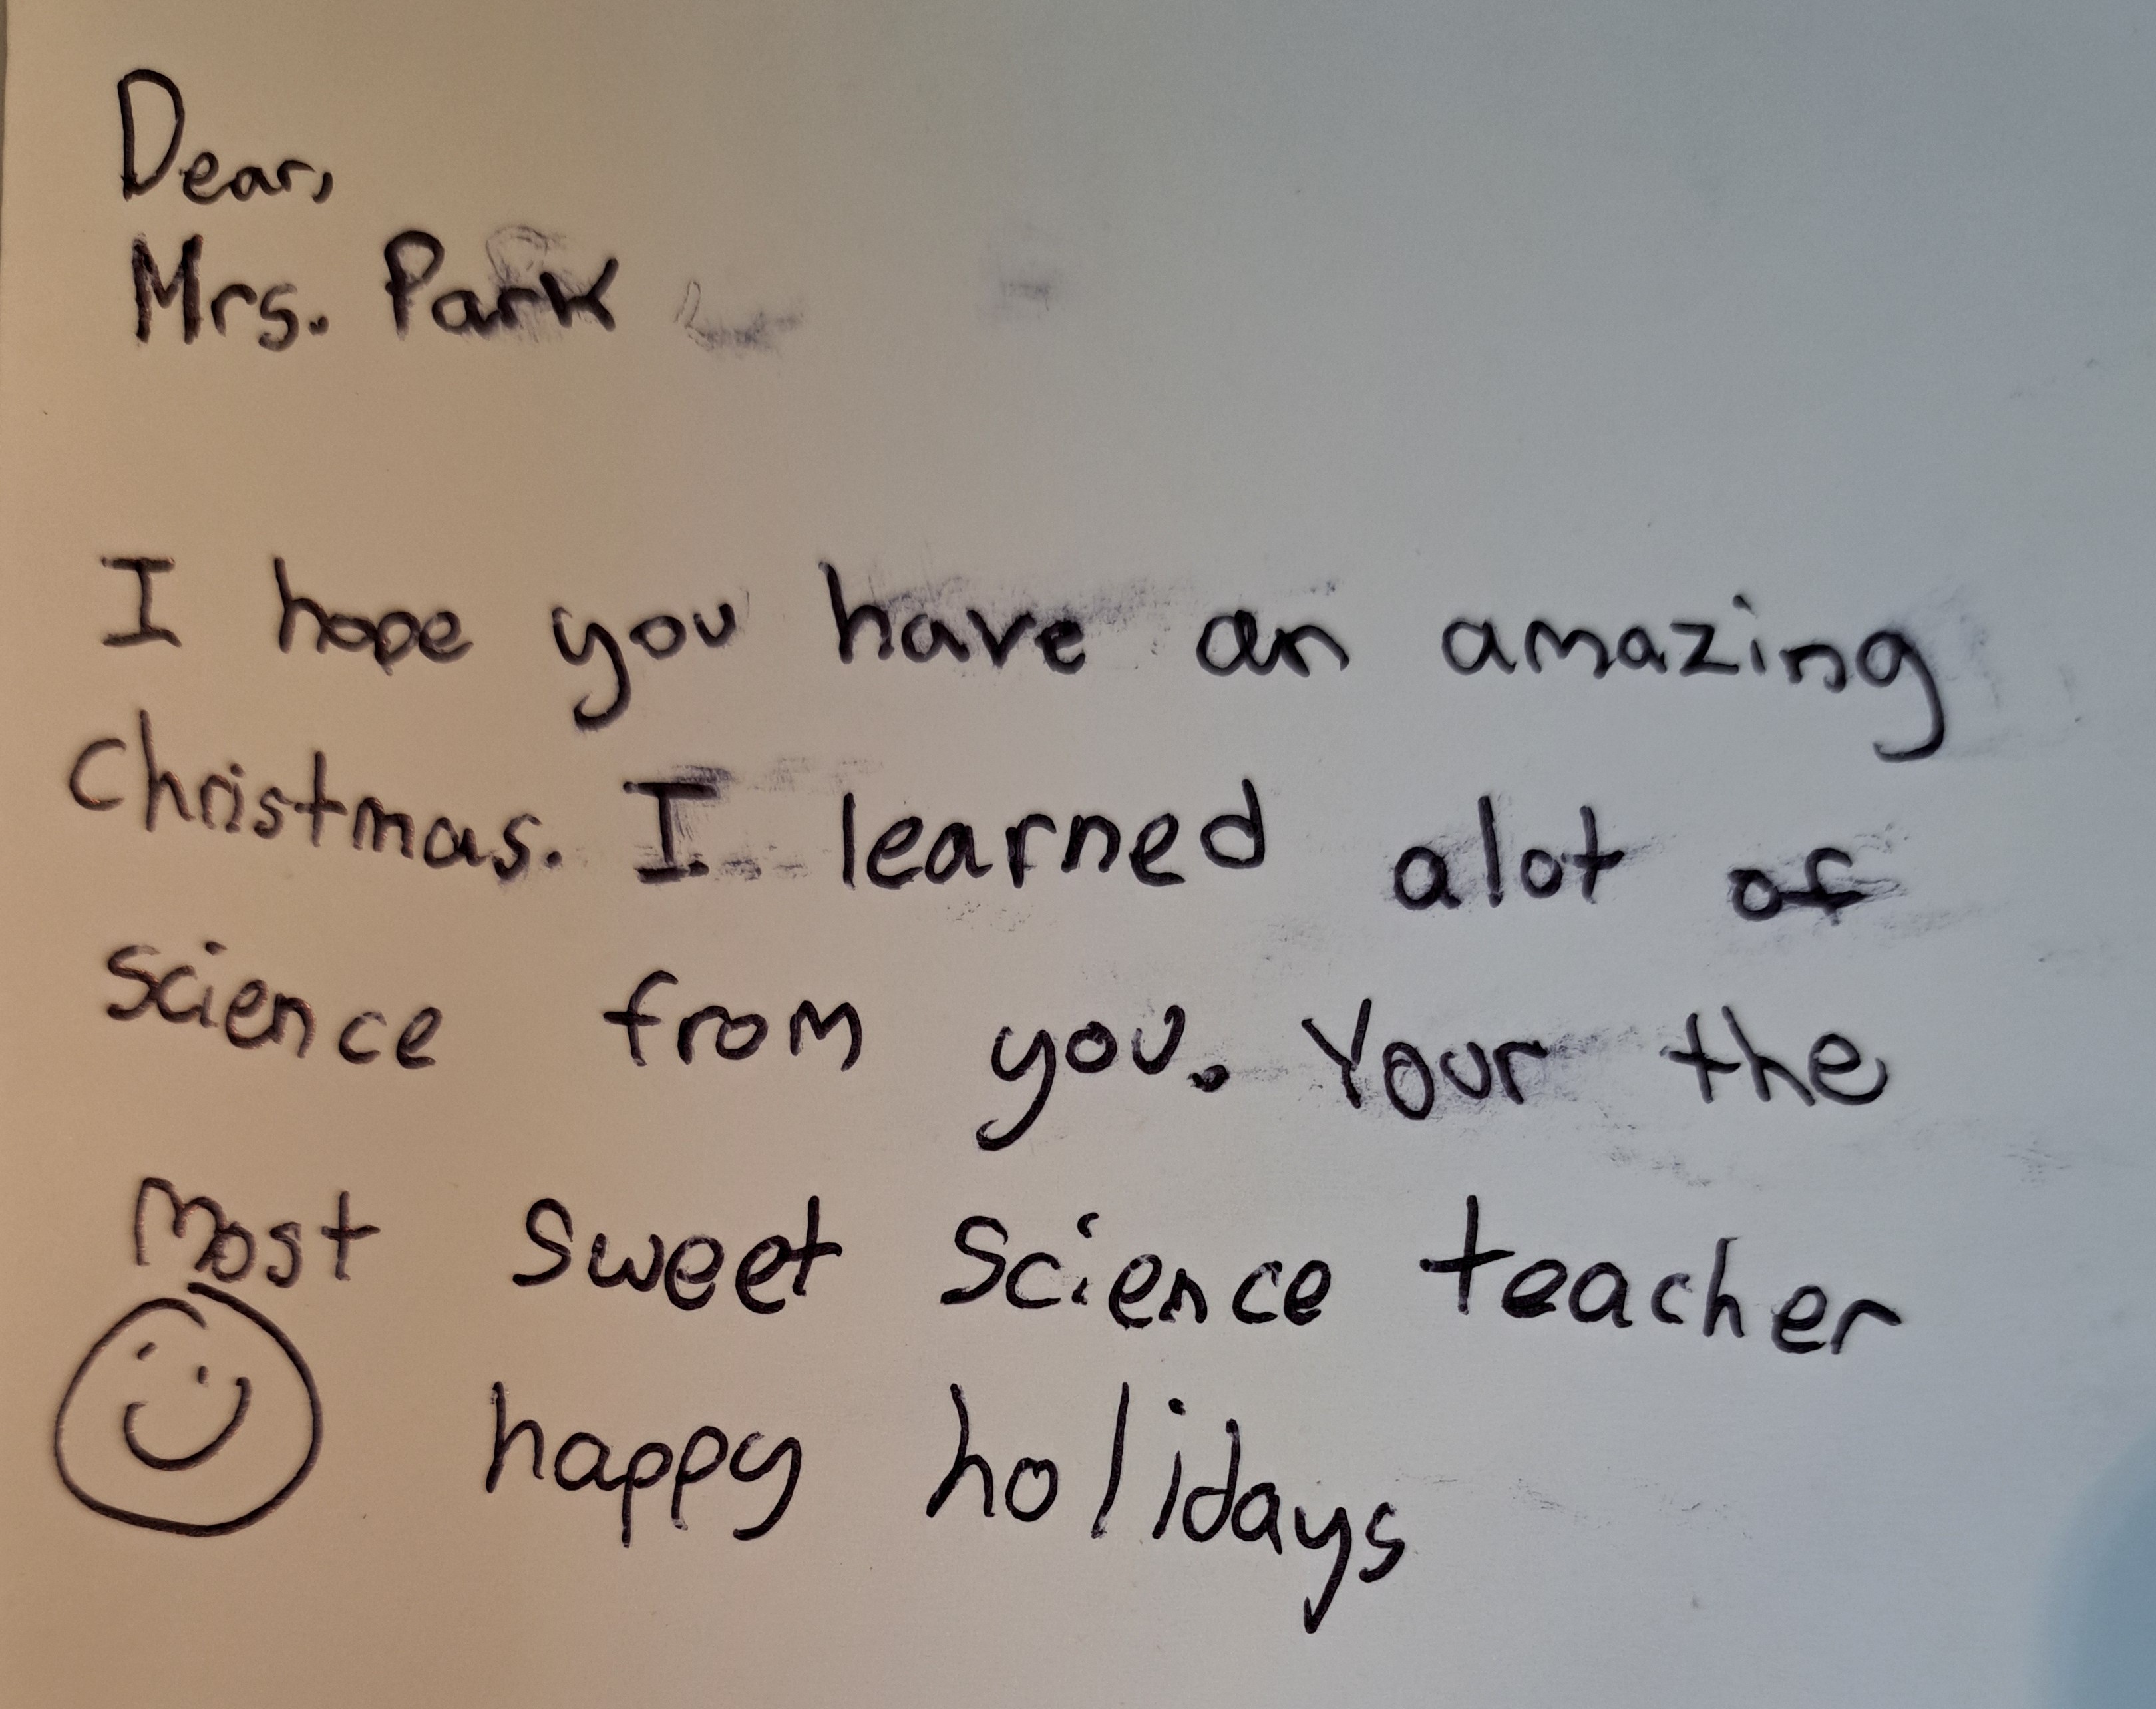 Dear,
Mrs. Park
I hope you have an amazing
christmas. I learned alot of
science from you. Your the
most sweet science teacher
happy holidays